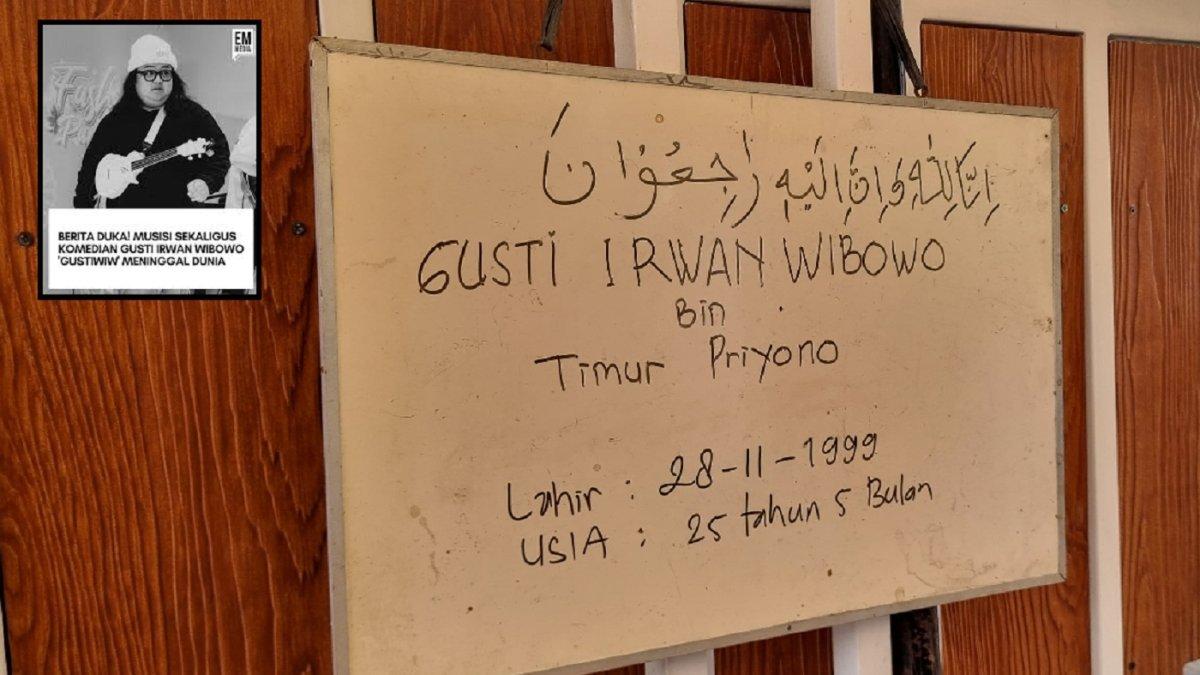 EM
MEDIA
BERITA DUKA! MUSISI SEKALIGUS
KOMEDIAN GUSTI IRWAN WIBOWO
'GUSTIWIW' MENINGGAL DUNIA
اِنَّا لِلّٰهِ وَاِنَّا اِلَيْهِ رَاجِعُوْانَ
GUSTI IRWAN WIBOWO
Bin
Timur Priyono
Lahir : 28-11-1999
USIA : 25 tahun 5 Bulan